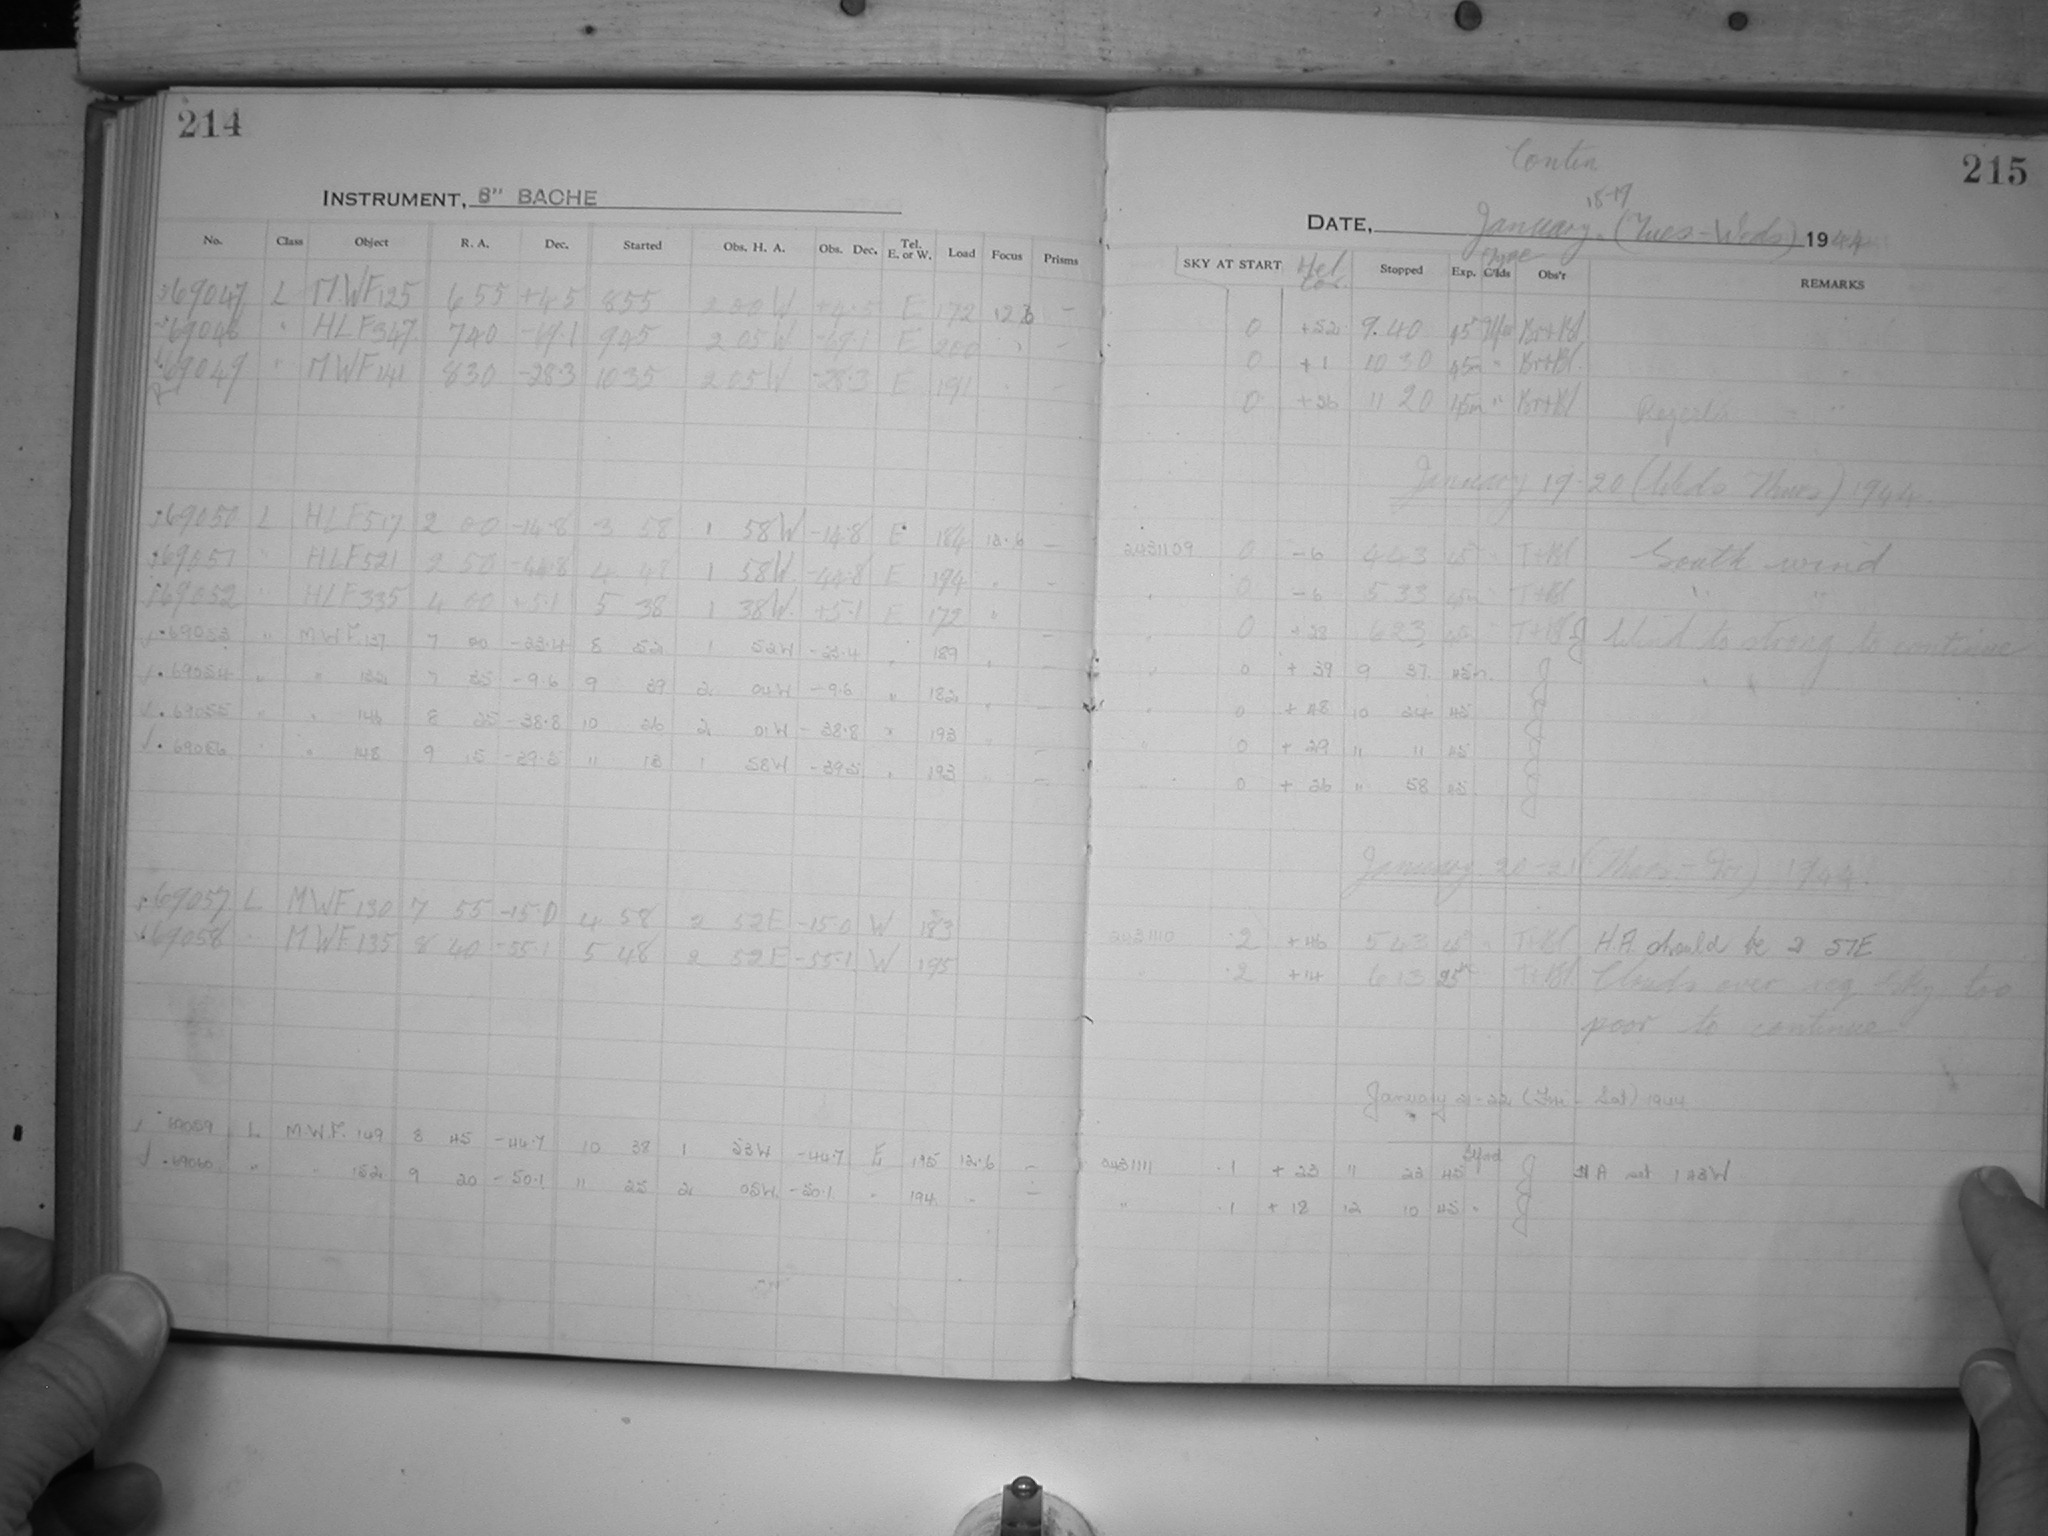 214
INSTRUMENT, 8" BACHE
No. Class Object R. A. Dec. Started Obs. H. A. Obs. Dec. Tel. E. or W. Load Focus Prisms
69047 L MWF125 6 55 +4.5 8 55 2 00W +4.5 E 172 12.6 –
69048 " HLF347 7 40 -69.1 9 45 2 05W -69.1 E 200 " –
69049 " MWF141 8 30 -28.3 10 35 2 05W -28.3 E 191 " –
69050 L HLF517 2 00 -14.8 3 58 1 58W -14.8 E 184 12.6 –
69051 " HLF521 2 50 -44.8 4 48 1 58W -44.8 E 194 " –
69052 " HLF335 4 00 +5.1 5 38 1 38W +5.1 E 172 "
69053 " M.W.F. 137 7 00 -23.4 8 52 1 52W -23.4 " 189 " –
69054 " " 7 35 -9.6 9 39 2 04W -9.6 " 182 " –
69055 " " 146 8 25 -38.8 10 26 2 01W -38.8 " 193 " –
69056 " " 148 9 15 -39.5 11 13 1 58W -39.5 " 193 " –
69057 L MWF130 7 55 -15.0 4 58 2 52E -15.0 W 183
69058 " MWF135 8 40 -55.1 5 48 2 52E -55.1 W 195
69059 L M.W.F. 149 8 45 -44.7 10 38 1 53W -44.7 E 195 12.6 –
69060 " " 152 9 20 -50.1 11 25 2 05W -50.1 " 194 – –
215
Contin
18-19
DATE, January (Tues-Weds) 1944
SKY AT START Stopped Exp. Type C/lds Obs'r REMARKS
0 +52 9.40 45 Br+Bl
0 +1 10 30 45m " Br+Bl
0 +26 11 20 45m " Br+Bl
January 19-20 (Weds Thurs) 1944
2431109 0 -6 4 43 45 " T+Bl South wind
" 0 -6 5 33 45m T+Bl " "
" 0 +28 6 23 45 T+Bl J Wind to strong to continue
" 0 +39 9 37 45m J
" 0 +48 10 24 45 J
" 0 +29 11 11 45 J
" 0 +26 " 58 45 J
January 20-21 (Thurs-Fri) 1944
2431110 .2 +46 5 43 45 " T+Bl H.A. should be 2 57E
" .2 +14 6 13 25m T+Bl Clouds over sky too
poor to continue
January 21-22 (Fri – Sat) 1944
2431111 .1 +23 11 23 45 J H A set 1 43W
" .1 +18 12 10 45 " J